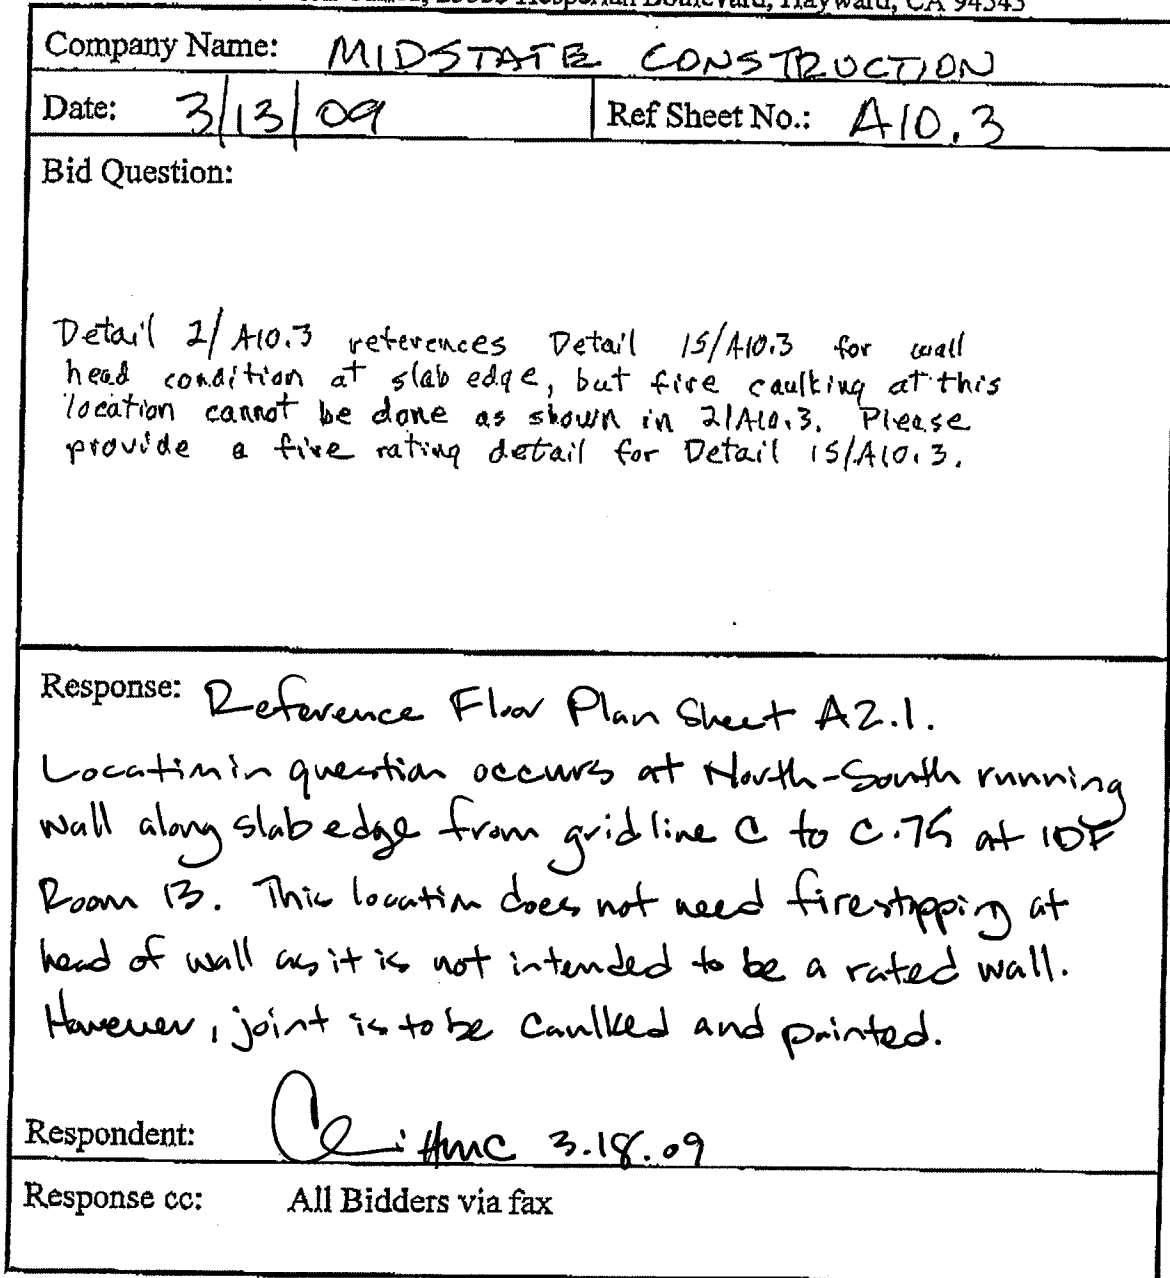 Hesperian Boulevard, Hayward, CA 94545
Company Name: MIDSTATE CONSTRUCTION
Date: 3/13/09 Ref Sheet No.: A10.3
Bid Question:
Detail 2/A10.3 references Detail 15/A10.3 for wall
head condition at slab edge, but fire caulking at this
location cannot be done as shown in 2/A10.3. Please
provide a fire rating detail for Detail 15/A10.3.
Response: Reference Floor Plan Sheet A2.1.
Location in question occurs at North-South running
wall along slab edge from gridline C to C.75 at IDF
Room 13. This location does not need firestopping at
head of wall as it is not intended to be a rated wall.
However, joint is to be caulked and painted.
Respondent: HMC 3.18.09
Response cc: All Bidders via fax